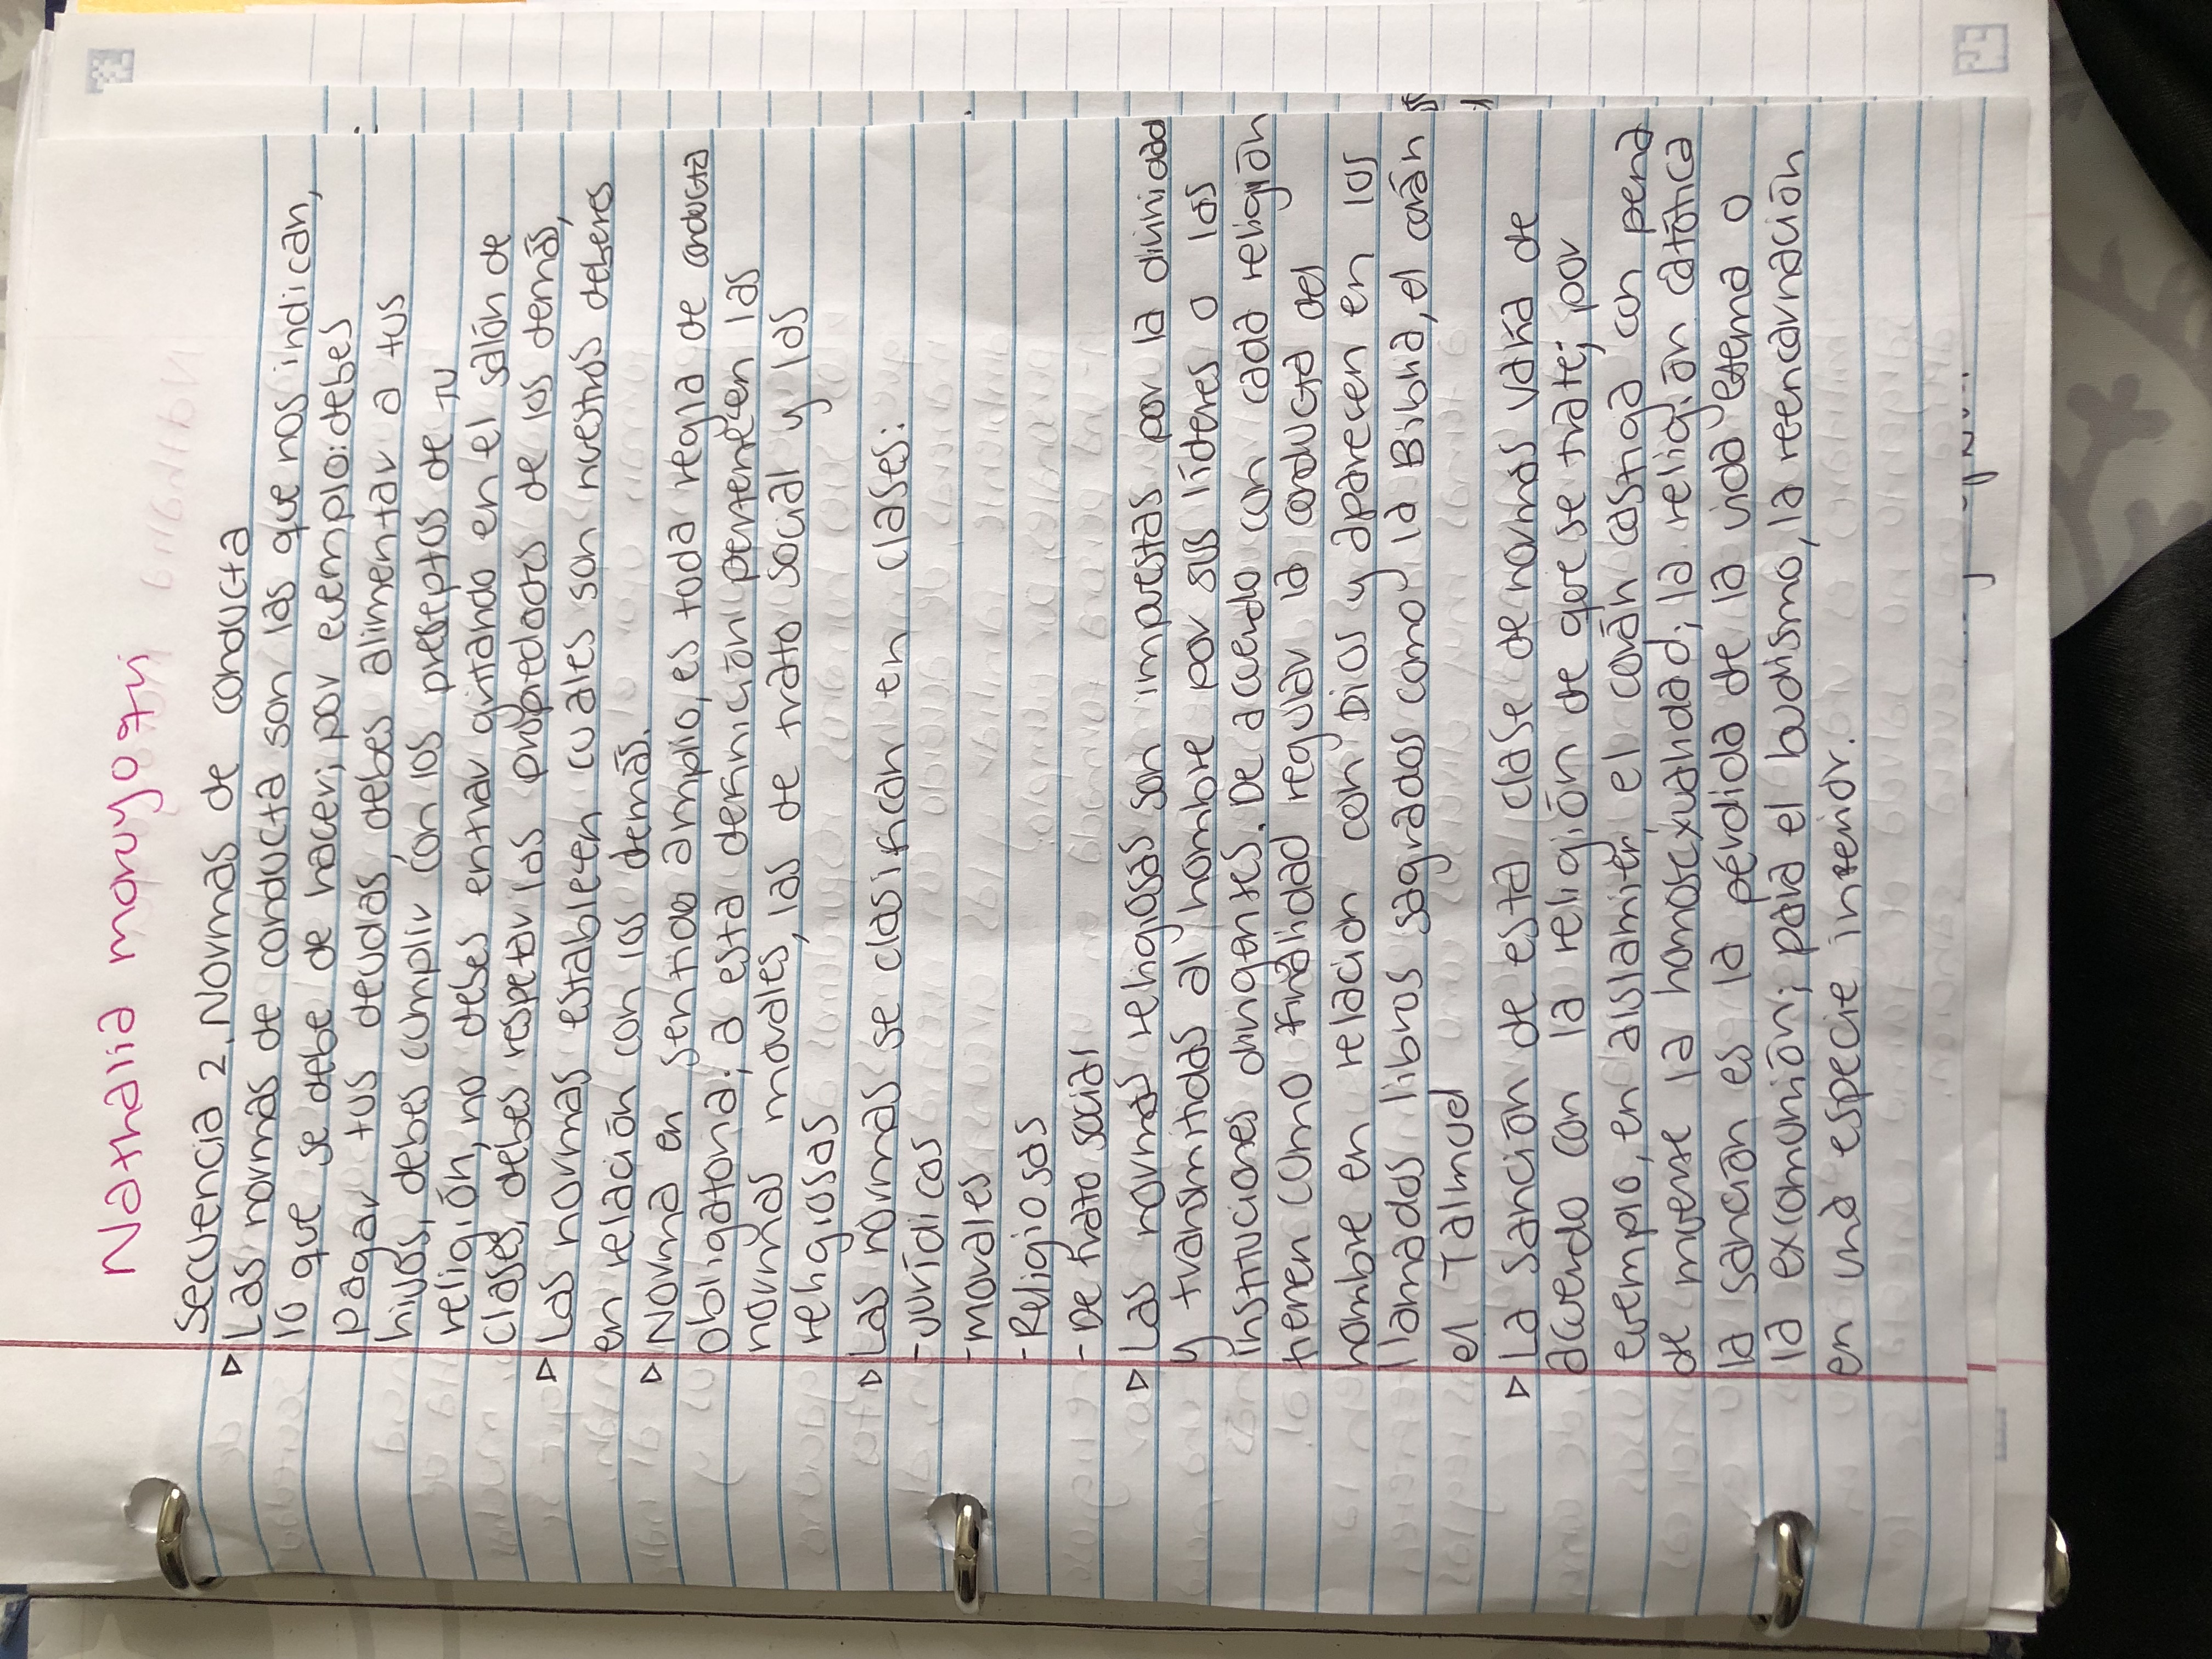 Nathalia monuyo 9tri
Secuencia 2. Normas de conducta
▷ Las normas de conducta son las que nos indican,
lo que se debe de hacer; por ejemplo: debes
pagar tus deudas, debes alimentar a tus
hijos, debes cumplir con los preseptos de tu
religión, no debes entrar gritando en el salón de
clases, debes respetar las propiedades de los demás,
▷ Las normas establecen cuales son nuestros deberes
en relación con los demás.
▷ Norma en sentido amplio, es toda regla de conducta
obligatoria; a esta definición pertenecen las
normas morales, las de trato social y las
religiosas
▷ Las normas se clasifican en clases:
- Jurídicas
- morales
- Religiosas
- De trato social
▷ Las normas religiosas son impuestas por la divinidad
y transmitidas al hombre por sus líderes o las
instituciones dirigentes. De acuerdo con cada religión
tienen como finalidad regular la conducta del
hombre en relación con Dios y aparecen en los
llamados libros sagrados como la Biblia, el corán
el Talmud
▷ La sanción de esta clase de normas varía de
acuerdo con la religión de que se trate; por
ejemplo, en el corán castiga con pena
de muerte la homosexualidad; la religión católica
la sanción es la pérdida de la vida eterna o
la excomunión; para el budismo, la reencarnación
en una especie inferior.